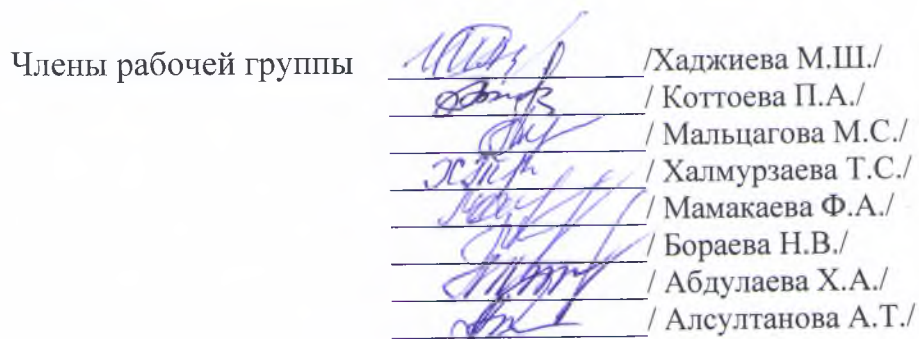 Члены рабочей группы /Хаджиева М.Ш./
/ Коттоева П.А./
/ Мальцагова М.С./
/ Халмурзаева Т.С./
/ Мамакаева Ф.А./
/ Бораева Н.В./
/ Абдулаева Х.А./
/ Алсултанова А.Т./